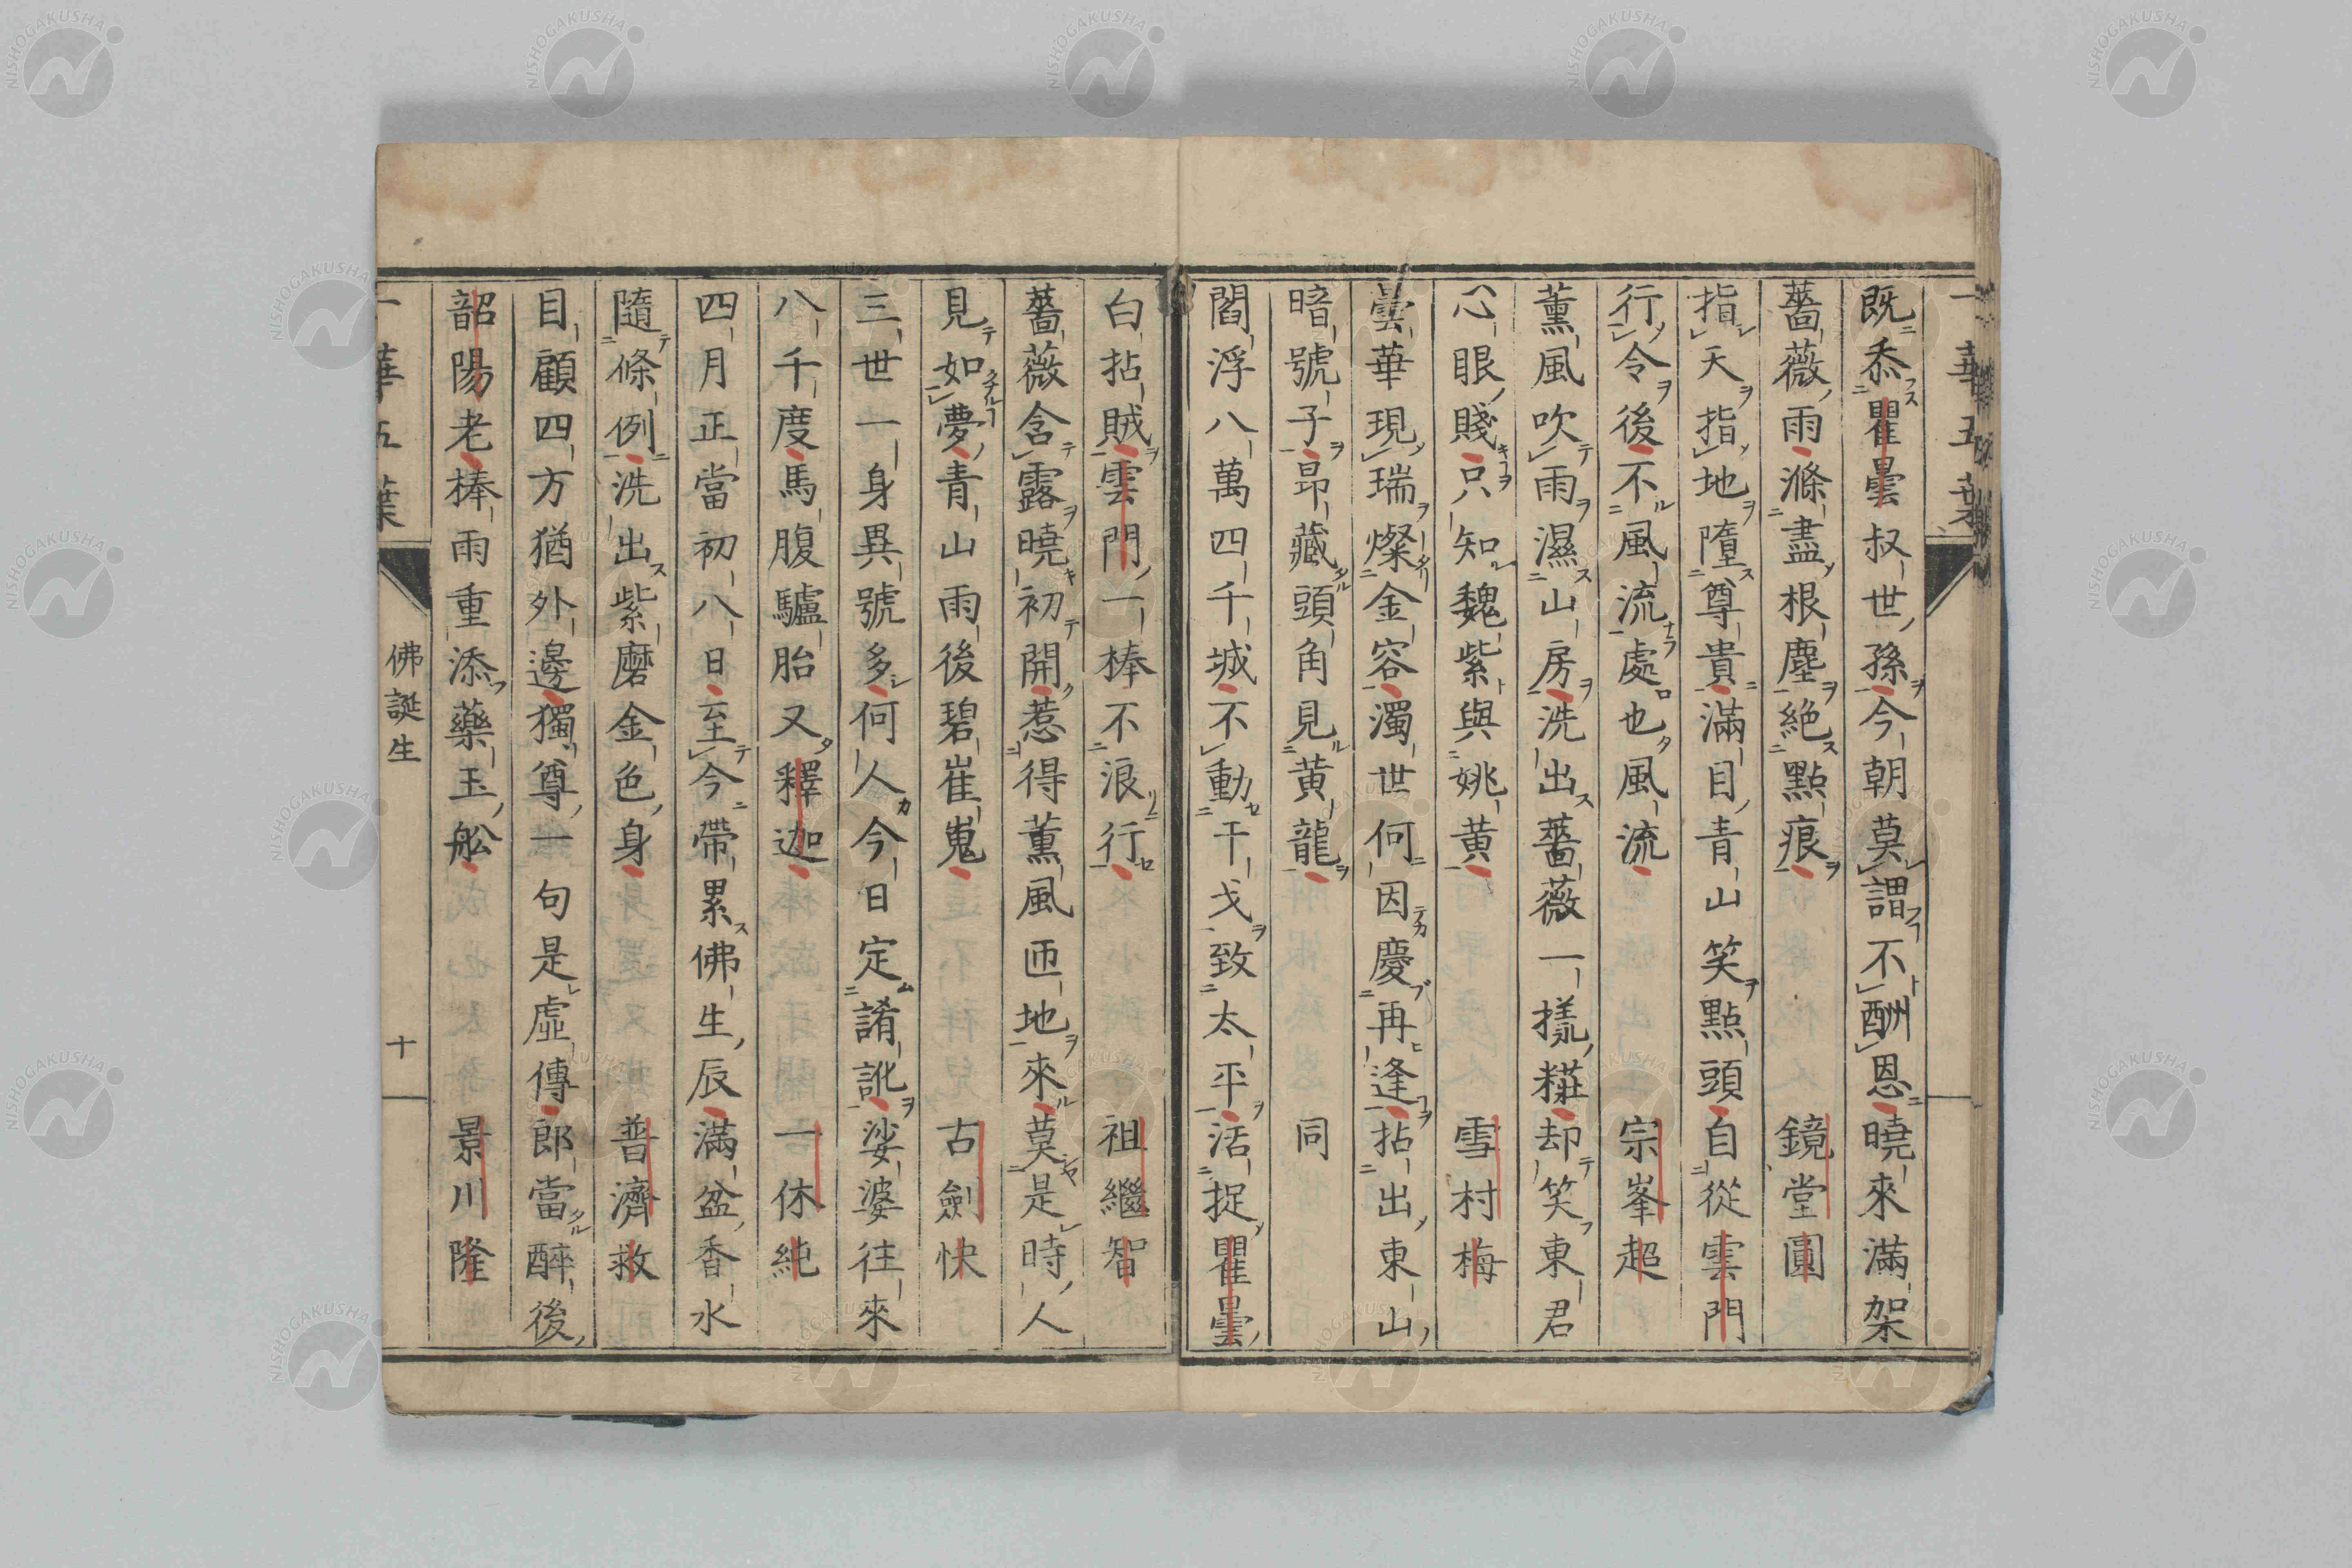 一華五葉
既忝瞿曇叔世孫今朝莫謂不酬恩曉來滿架
薔薇雨滌盡根塵絶點痕 鏡堂圓
指天指地墮尊貴滿目青山笑點頭自從雲門
行令後不風流處也風流 宗峯超
薰風吹雨濕山房洗出薔薇一㨾糚却笑東君
心眼賤只知魏紫與姚黄 雪村梅
曇華現瑞燦金容濁世何因慶再逢拈出東山
暗號子昂藏頭角見黄龍 同
閻浮八萬四千城不動干戈致太平活捉瞿曇
白拈賊雲門一棒不浪行 祖繼智
薔薇含露曉初開惹得薰風匝地來莫是時人
見如夢青山雨後碧崔嵬 古劍快
三世一身異號多何人今日定誵訛娑婆往來
八千度馬腹驢胎又釋迦 一休純
四月正當初八日至今帶累佛生辰滿盆香水
隨條例洗出紫磨金色身 普濟救
目顧四方猶外邊獨尊一句是虛傳郎當醉後
韶陽老棒雨重添藥玉舩 景川隆
一華五葉
佛誕生
十
NISHOGAKUSHA